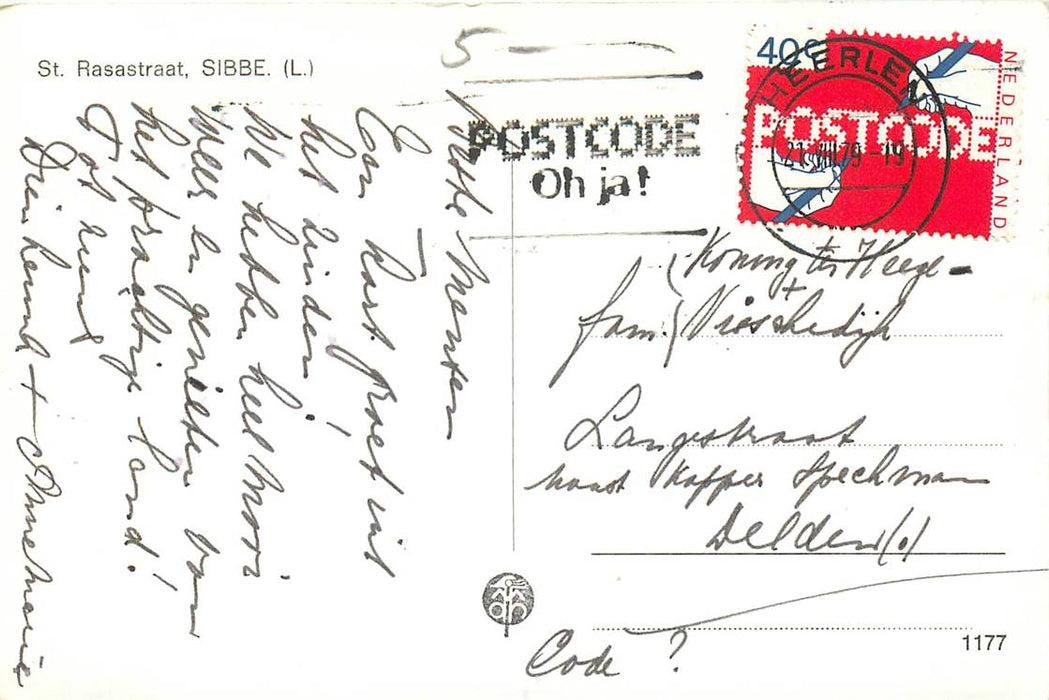 St. Rasastraat, SIBBE. (L.)
5
Beste Mensen
Een hart. groet uit
het zuiden!
We hebben heel mooi
weer en genieten van
het prachtige land!
Tot ziens
Dien hennk + Annemarie
POSTCODE
Oh ja!
40c
NEDERLAND
POSTCODE
HEERLEN
21.VIII.79-19
Koning ter Heege-
+
fam. Visschedijk
Langestraat
naast Kapper Spechman
Delden (o)
Code ?
1177